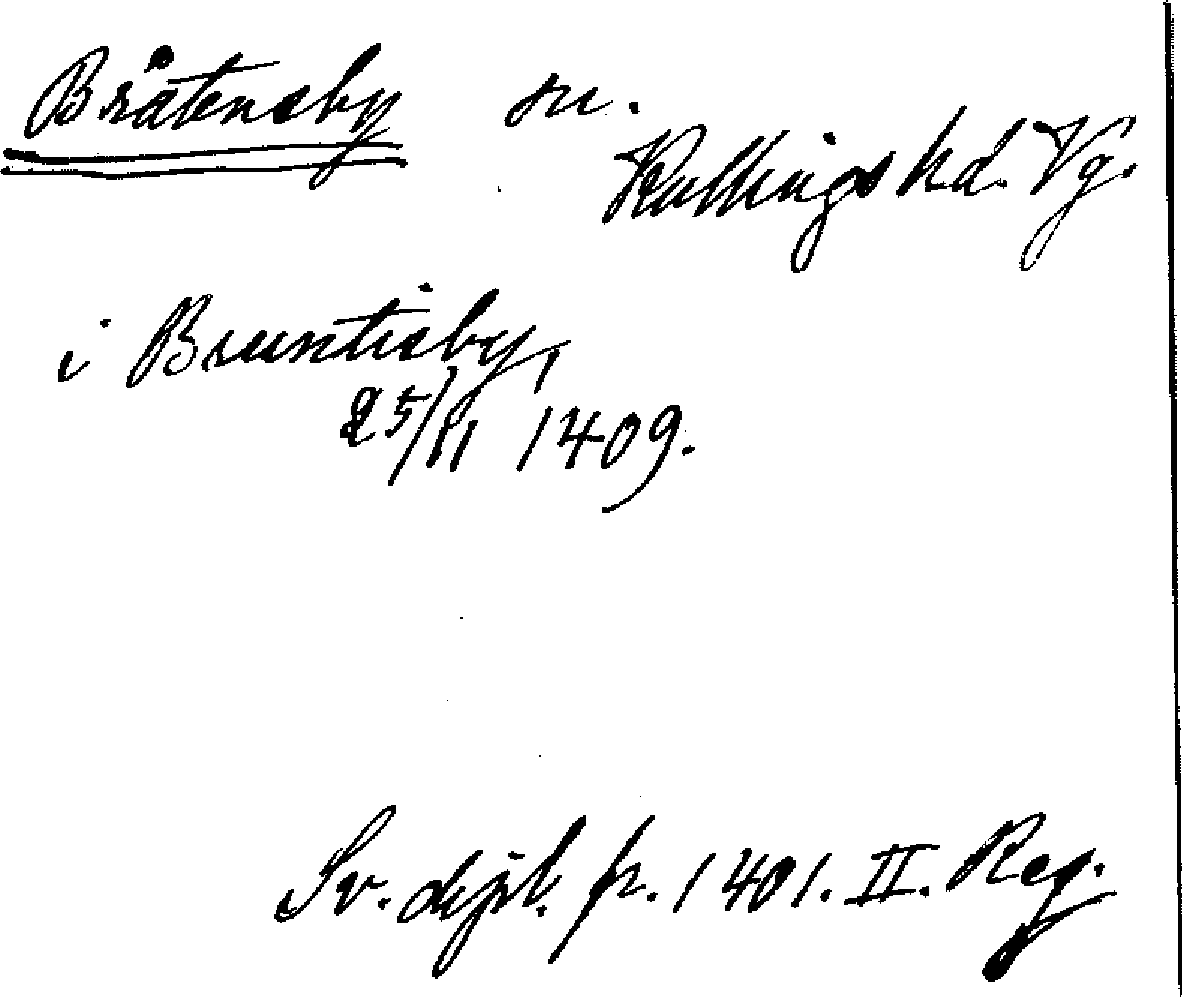 Bråtensby sn.
Kullings hd. Vg.
i Bruntisby,
25/11 1409.
Sv. dipl. fr. 1401. II. Reg.